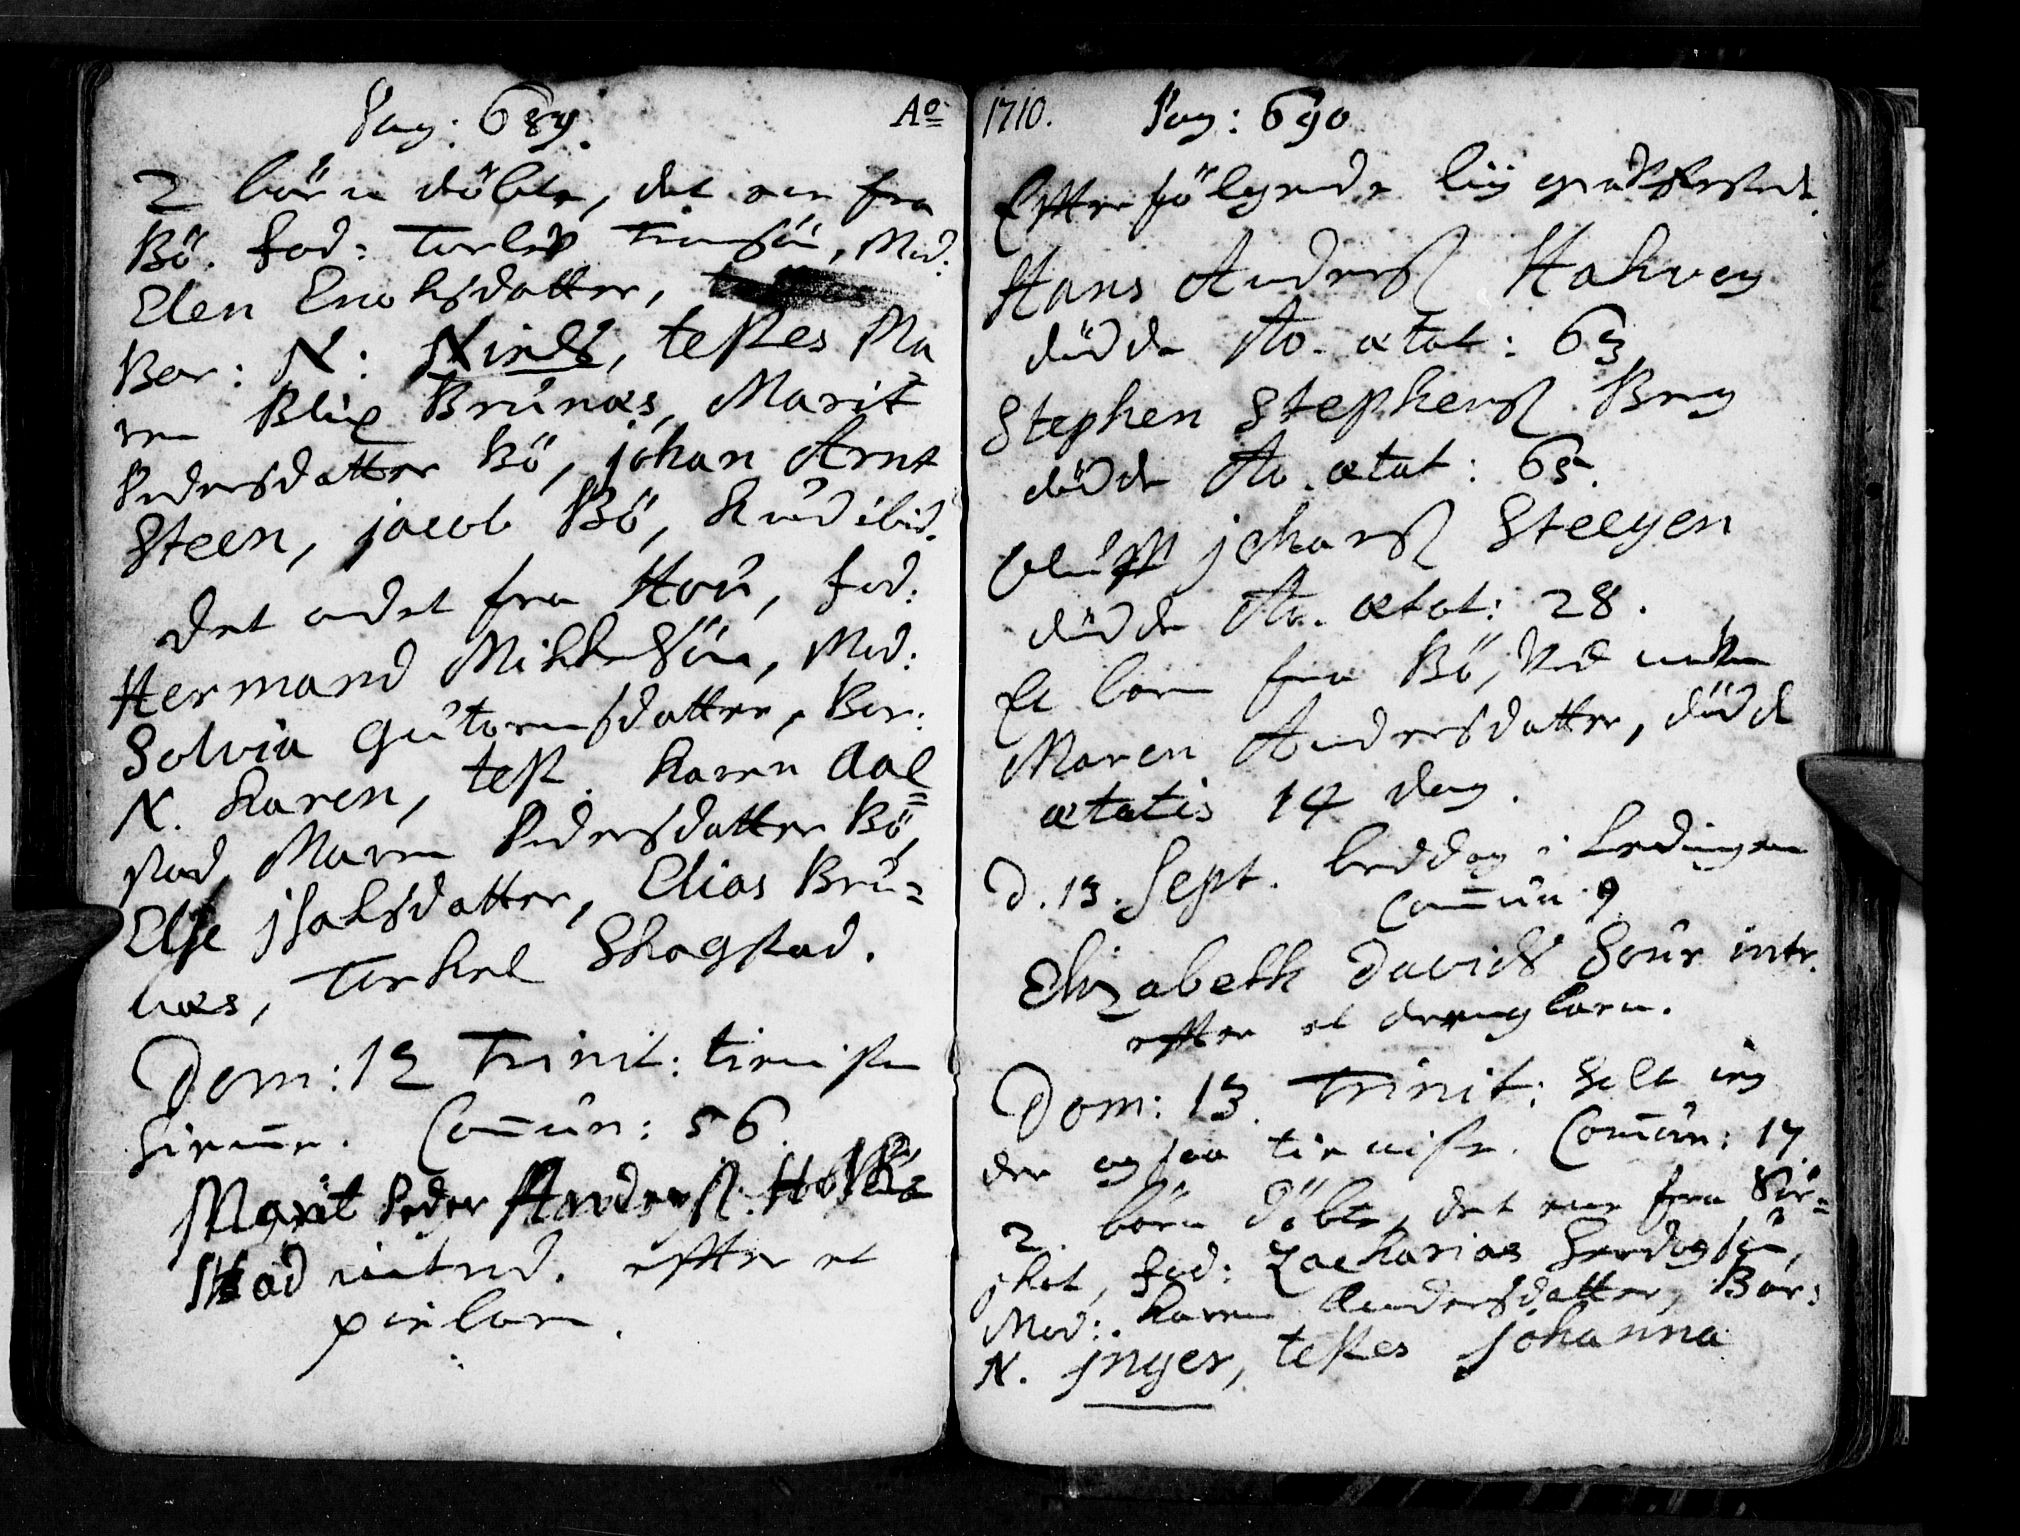 Pag: 689. Ao
2 börn döbte, det ene fra
Bö. Fad: Torleb Tronsön, Mod:
Elen Enochsdatter,
Bar: N: Niels, testes Ma
ren Blix Brunæs, Marit
Pedersdatter Bö, johan Arnt
Steen, jacob Bö, Knud ibid.
Det andet fra Hou, Fad:
Hermand Mikkelsön, Mod:
Solvia Gutormsdatter, Bar:
N. Karen, test. Karen Aal=
stad, Maren Pedersdatter Bö,
Else jsaksdatter, Elias Bru=
næs, Torkel Skagstad.
Dom: 12 Trinit: tienisten
hiemme. Comun: 56.
Marit Peder Anders.
stad introd. efter et
piebarn.
1710. Pag: 690
Efterfölgende liig
Hans Anderss Hakvog
döde Ao. ætat: 63
Stephen Stephenss. Berg
döde Ao. ætat: 65.
Oluff johanss Steegen
döde Ao. ætat: 28.
Et barn fra Bö, Ved nafn
Maren Andersdatter, döde
ætatis 14 dag.
D. 13. Sept. beddag i Ledingen
Comun 9
Elizabeth Davids Sour intr.
efter et drengbarn.
Dom: 13. Trinit: holt ieg
der ogsaa tieniste. Comun: 17.
2. börn döbte, det ene fra Sör=
skot, Fad: Zacharias
Mod: Karen Andersdatter, Bar:
N. jnger, testes johanna